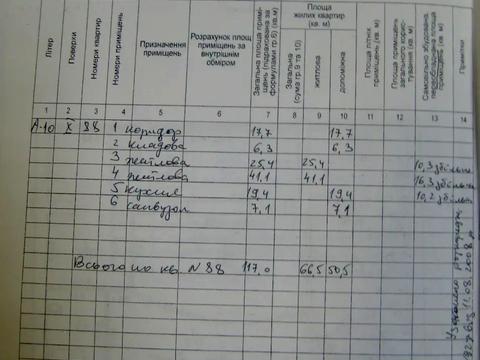 Літер
Поверхи
Номери квартир
Номери приміщень
Призначення приміщень
Розрахунок площ приміщень за внутрішнім обміром
Загальна площа приміщень (підрахована за формулами гр.6) (кв.м)
Площа жилих квартир (кв. м)
Загальна (сума гр.9 та 10)
житлова
допоміжна
Площа літніх приміщень (кв. м)
Площа приміщень загального користування (кв. м)
Самовільно збудована, переобладнана площа приміщень (кв. м)
Примітки
1 2 3 4 5 6 7 8 9 10 11 12 13 14
А-10 X 88 1 коридор 17,7 17,7
2 кладова 6,3 6,3
3 житлова 25,4 25,4 10,3
4 житлова 41,1 41,1 16,3
5 кухня 19,4 19,4 10,2
6 санвузол 7,1 7,1
Всього по кв. N 88 117,0 66,5 50,5
Узаконено
11.08.2008 р